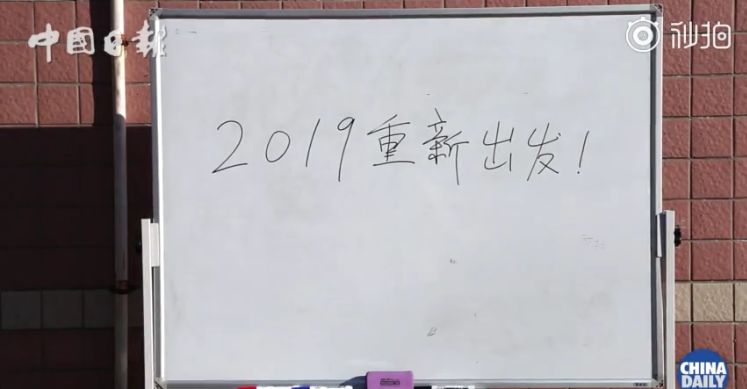 中国日报
秒拍
2019重新出发!
CHINA
DAILY